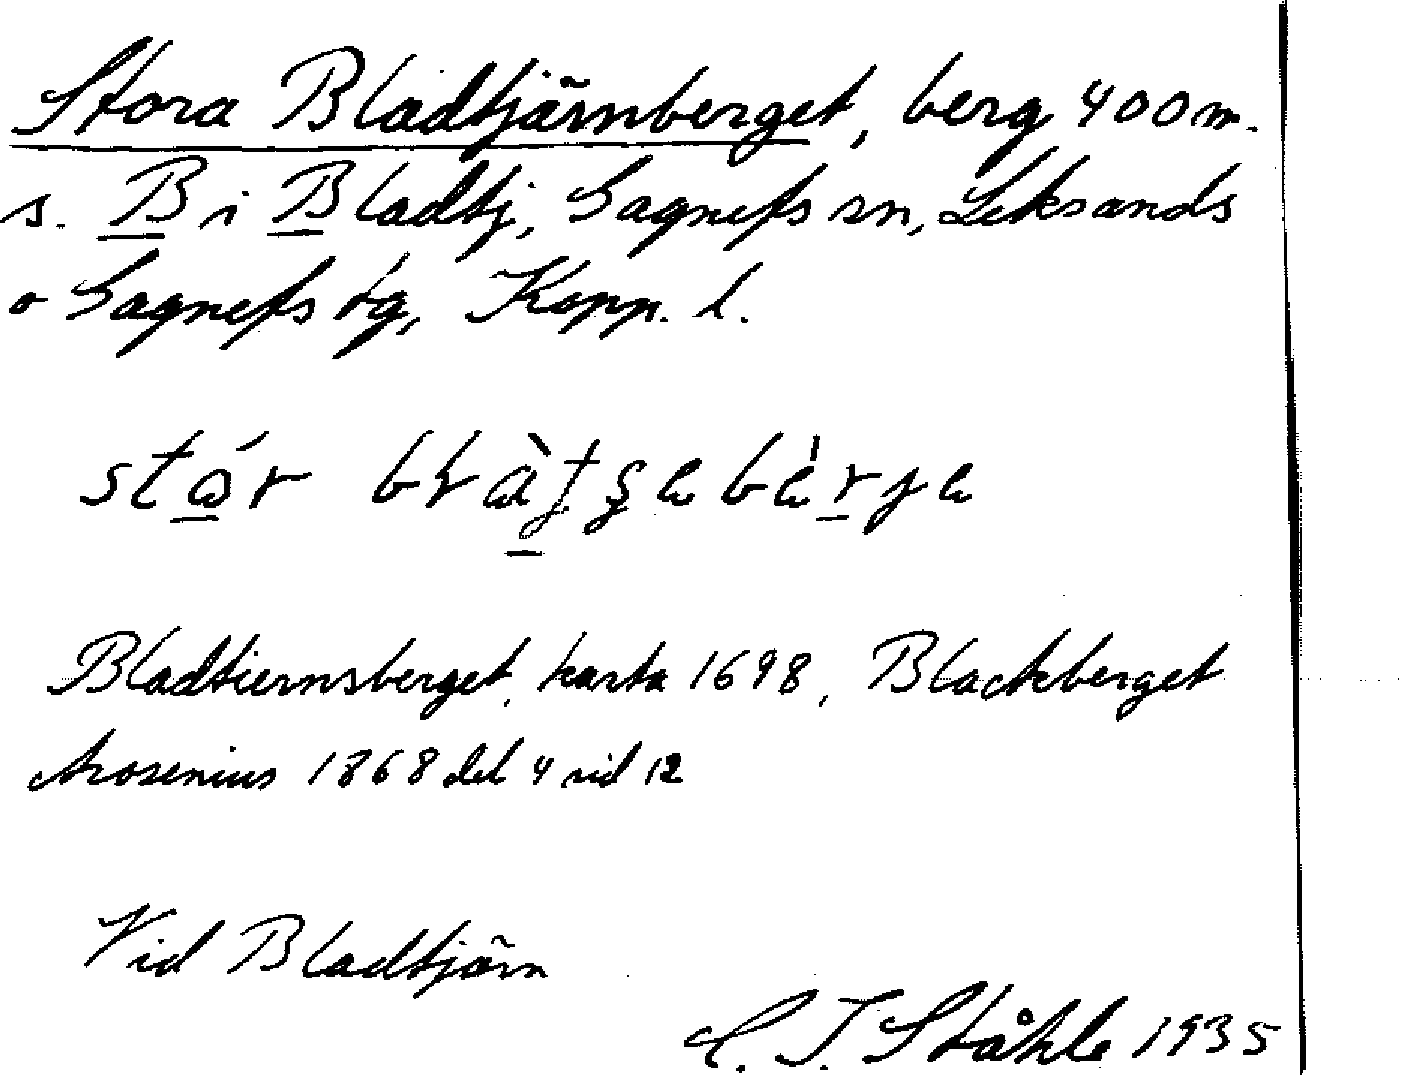 Stora Bladtjärnberget, berg 400 m.
s. B i Bladtj, Gagnefs sn, Leksands
o Gagnefs tg, Kopp. l.
Bladtiernsberget, karta 1698, Blackberget
Arosenius 1868 del 4 sid 12
Vid Bladtjärn
C. I. Ståhle 1935